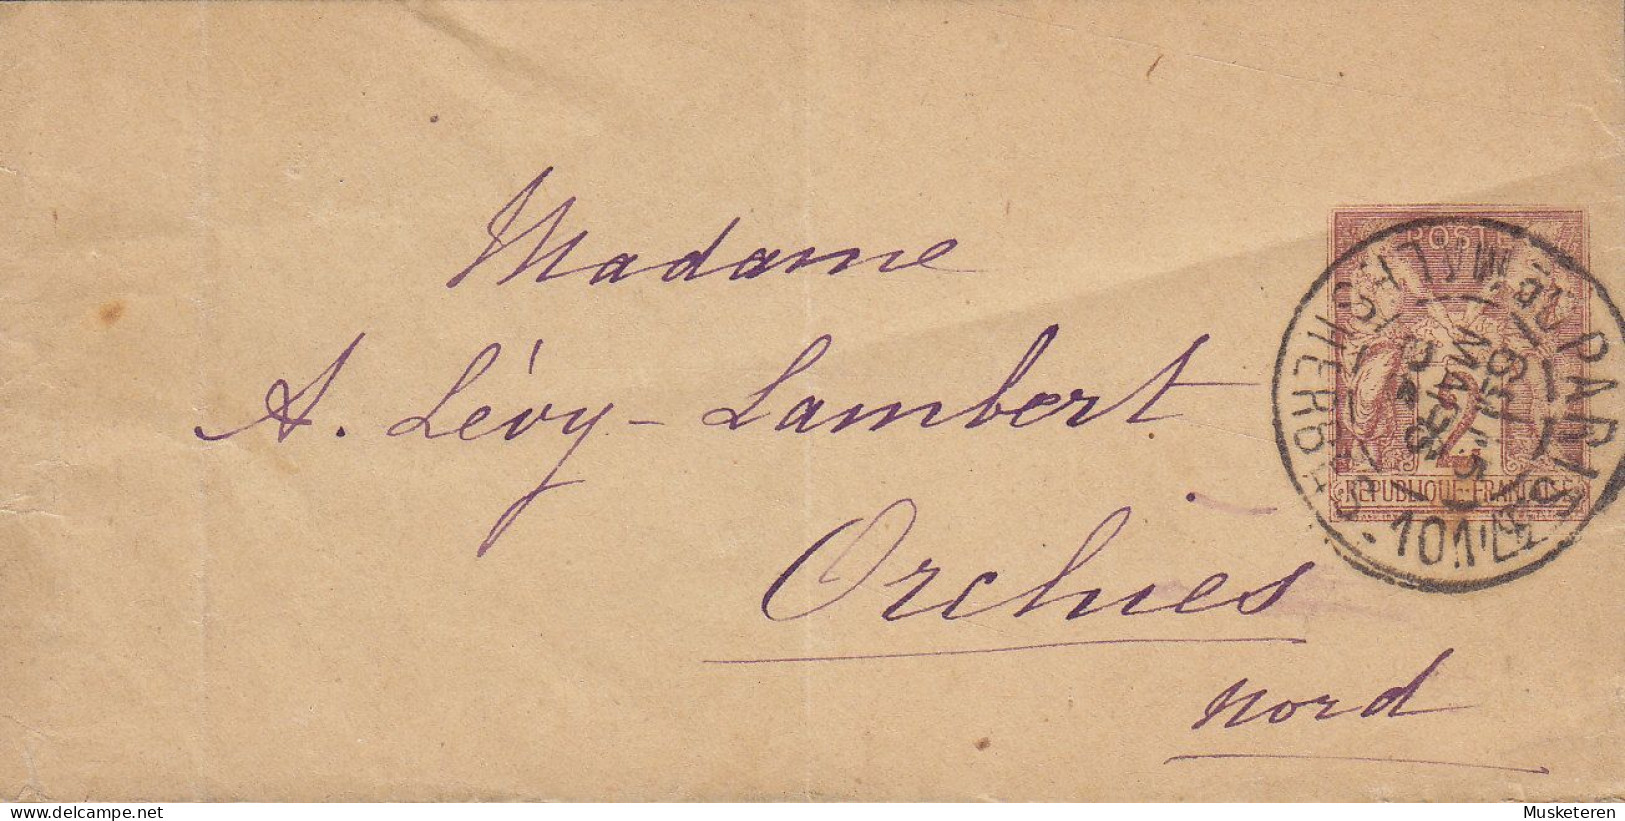 Madame
A. Lévy-Lambert
Orchies
Nord
POSTES
2
RÉPUBLIQUE FRANÇAISE
PARIS
101
MARS
delcampe.net
Musketeren